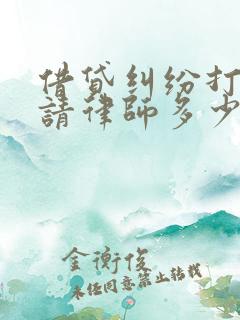 借贷纠纷打
請律師多少
金衡俊
未经同意禁止转载